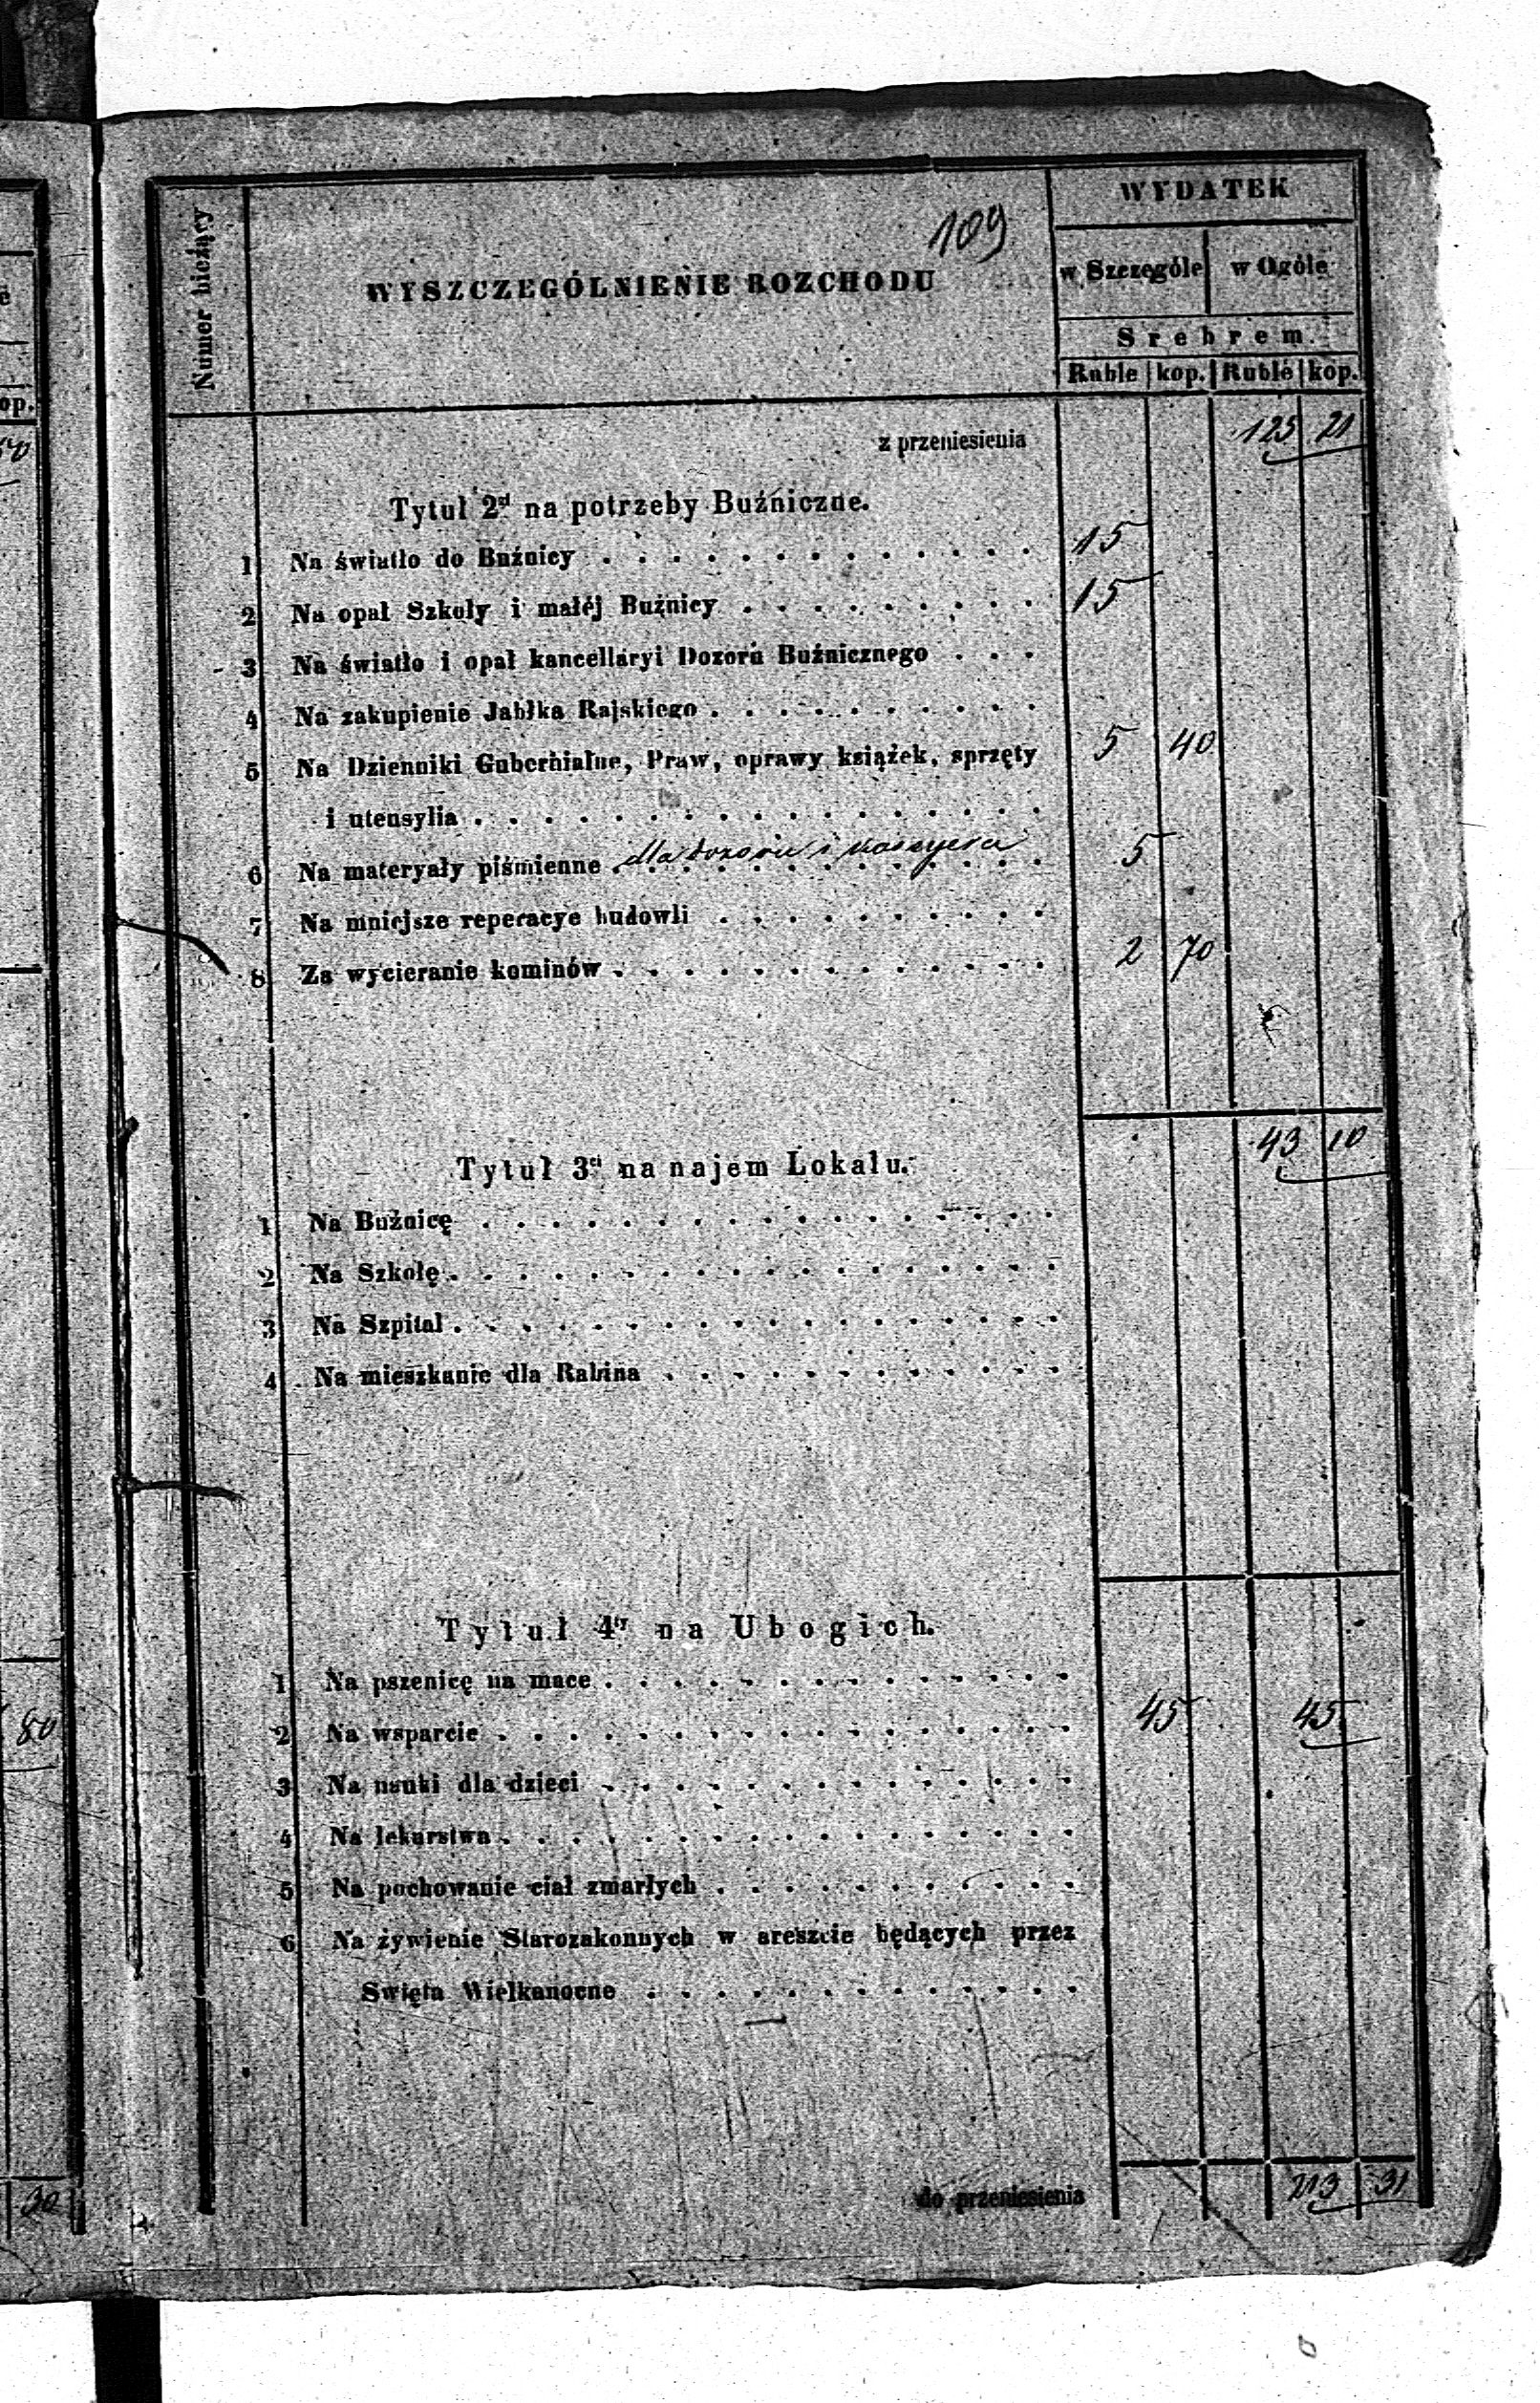 ē
op.
50
80
30
109
Numer bieżący
WYSZCZEGÓLNIENIE ROZCHODU
WYDATEK
w Szczególe w Ogóle
Srebrem.
Ruble kop. Ruble kop.
z przeniesienia 125 21
Tytuł 2gi na potrzeby Buźniczne.
1 Na światło do Buźnicy . . . . . . . . . . . . . 15
2 Na opał Szkoły i małéj Buźnicy . . . . . . . . . 15
3 Na światło i opał kancellaryi Dozoru Buźnicznego . . .
4 Na zakupienie Jabłka Rajskiego . . . . . . . . . .
5 Na Dzienniki Gubernialne, Praw, oprawy książek, sprzęty 5 40
i utensylia . . . . . . . . . . . . . . . . .
6 Na materyały piśmienne dla dozoru i kassyera 5
7 Na mniejsze reperacye budowli . . . . . . . . . .
8 Za wycieranie kominów . . . . . . . . . . . . . 2 70
43 10
Tytuł 3ci na najem Lokalu.
1 Na Buźnicę . . . . . . . . . . . . . . . . .
2 Na Szkołę . . . . . . . . . . . . . . . . . .
3 Na Szpital . . . . . . . . . . . . . . . . . .
4 Na mieszkanie dla Rabina . . . . . . . . . . . .
Tytuł 4ty na Ubogich.
1 Na pszenicę na mace . . . . . . . . . . . . . .
2 Na wsparcie . . . . . . . . . . . . . . . . . 45 45
3 Na nauki dla dzieci . . . . . . . . . . . . . .
4 Na lekarstwa . . . . . . . . . . . . . . . . .
5 Na pochowanie ciał zmarłych . . . . . . . . . . .
6 Na żywienie Starozakonnych w areszcie będących przez
Święta Wielkanocne . . . . . . . . . . . . .
do przeniesienia 213 31